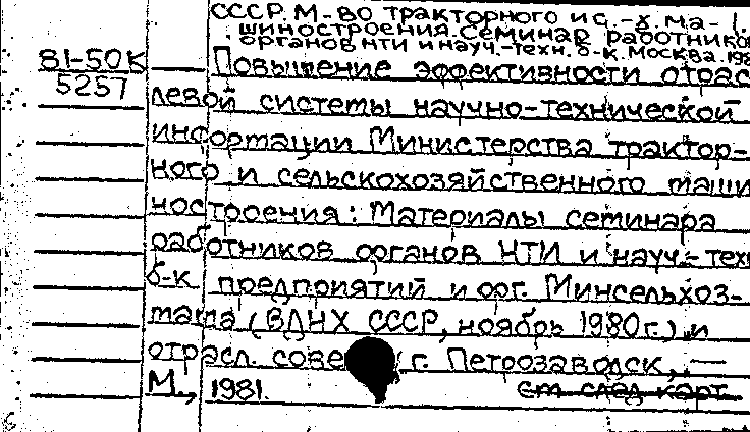 СССР. М-во тракторного и с.-х. ма-
шиностроения. Семинар работнико
органов НТИ и науч.-техн. б-к. Москва. 198
81-50К
5257
Повышение эффективности отрас
левой системы научно-технической
информации Министерства трактор-
ного и сельскохозяйственного маши
ностроения: Материалы семинара
работников органов НТИ и науч.-техн
б-к предприятий и орг. Минсельхоз-
маша (ВДНХ СССР, ноябрь 1980г.) и
отрасл. сове г. Петрозаводск, —
М., 1981.
см след карт.